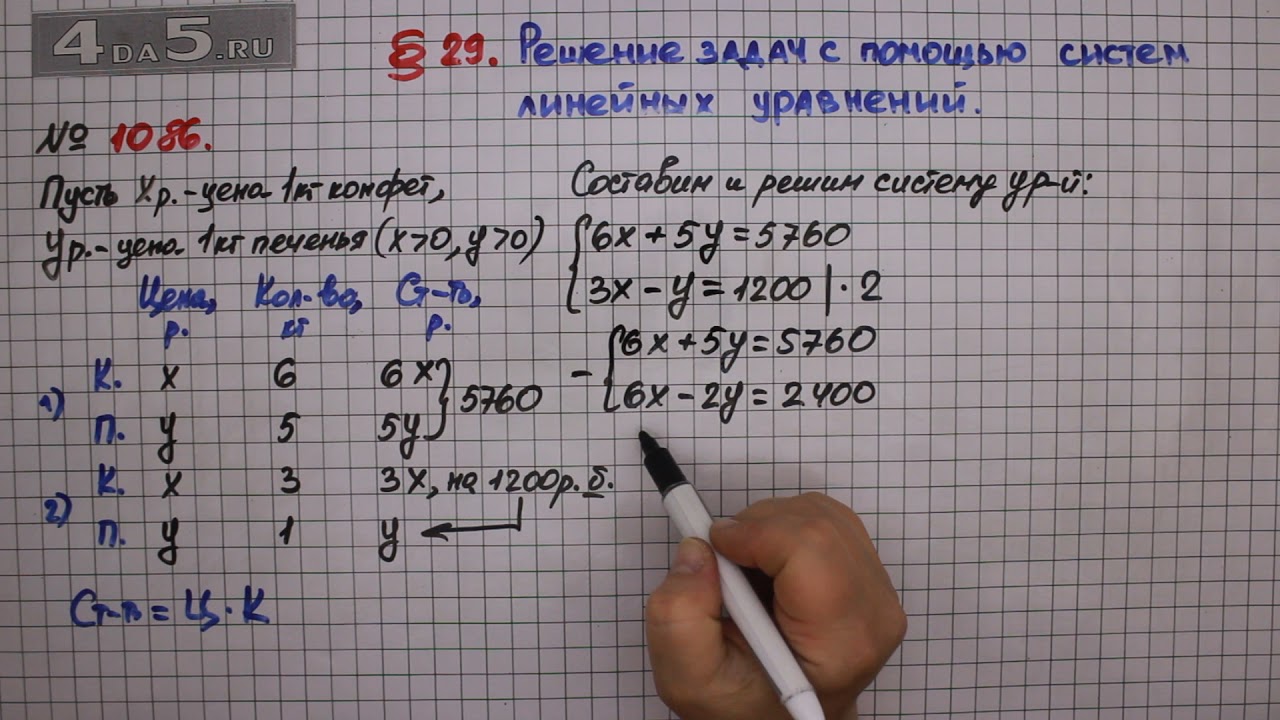 4DA5.RU
§ 29. Решение задач с помощью систем
линейных уравнений.
№ 1086.
Пусть Xр.-цена 1кг конфет,
Yр.-цена 1кг печенья (x>0, y>0)
Цена, р. Кол-во, кг Ст-ть, р.
1) К. x 6 6x } 5760
П. y 5 5y
2) К. x 3 3x, на 1200р. б.
П. y 1 y
Ст-ть = Ц · К
Составим и решим систему ур-й:
{ 6x + 5y = 5760
3x - y = 1200 | · 2
- { 6x + 5y = 5760
6x - 2y = 2400